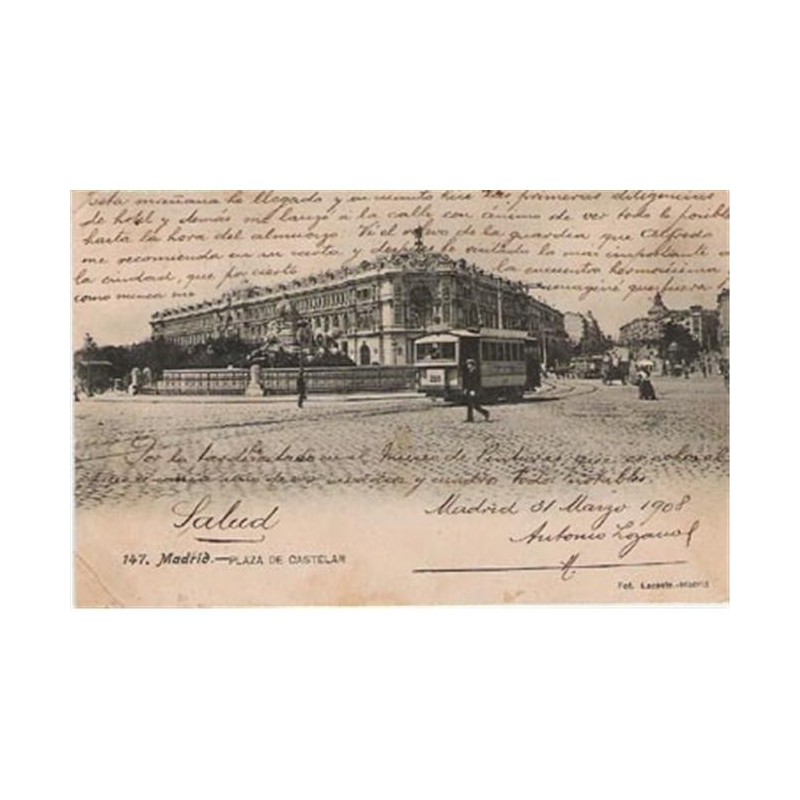 Esta mañana he llegado y en cuanto hice las primeras diligencias
de hotel y demás me lanzé á la calle con animo de ver todo lo posible
hasta la hora del almuerzo Vi el relevo de la guardia que Alfredo
me recomienda en su carta y despues he visitado lo mas importante de
la ciudad, que por cierto la encuentro hermosisima y
como nunca me imaginé que fuera
Por la tarde he estado en el Museo de Pinturas que es colosal
y cuadros todos notables.
Salud
Madrid 31 Marzo 1908
Antonio Lozano
147. Madrid.—PLAZA DE CASTELAR
Fot. Lacoste.-Madrid